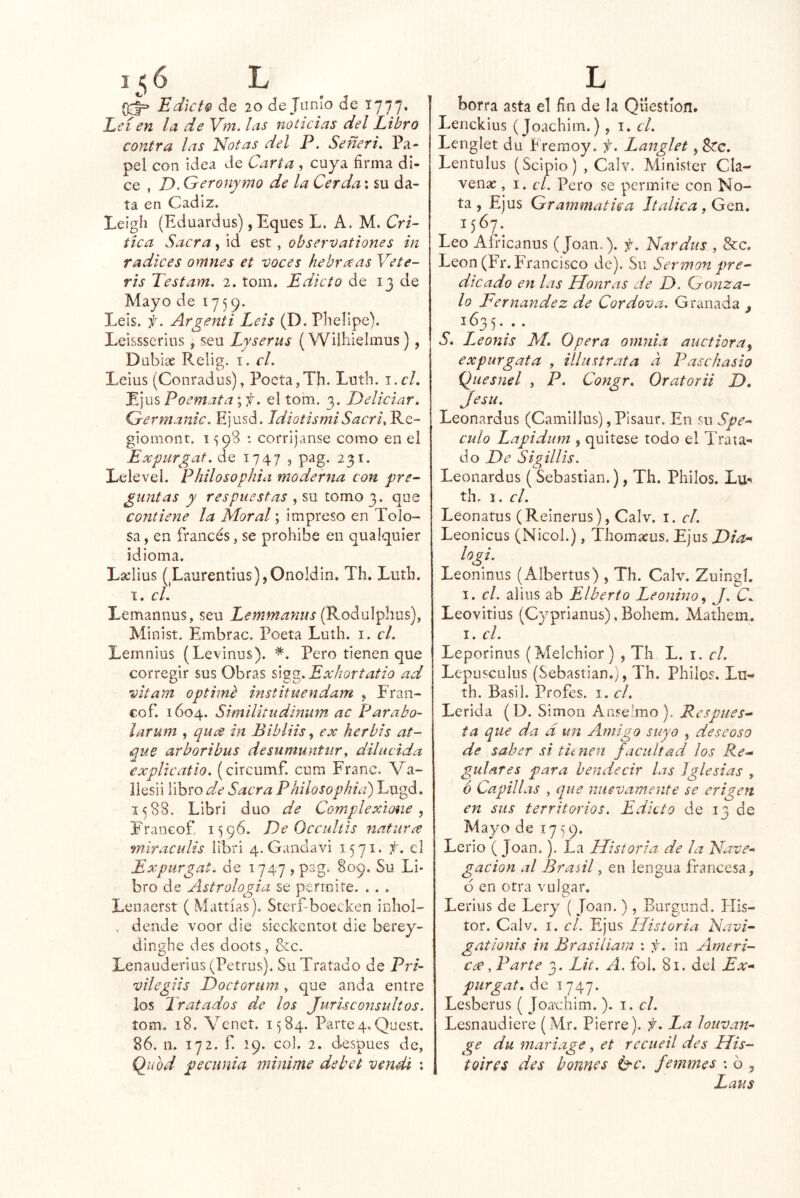 156 L
☞ Edicto de 20 de Junio de 1777.
Lei en la de Vm. las noticias del Libro
contra las Notas del P. Señeri. Pa-
pel con idea de Carta, cuya firma di-
ce , D. Geronymo de la Cerda: su da-
ta en Cadiz.
Leigh (Eduardus) , Eques L. A. M. Cri-
tica Sacra, id est , observationes in
radices omnes et voces hebræas Vete-
ris Testam. 2. tom. Edicto de 13 de
Mayo de 1759.
Leis. ℣. Argenti Leis (D. Phelipe).
Leissserius , seu Lyserus (Wilhielmus) ,
Dubiæ Relig. 1. cl.
Leius (Conradus), Poeta, Th. Luth. 1. cl.
Ejus Poemata; ℣. el tom. 3. Deliciar.
Germanic. Ejusd. Idiotismi Sacri, Re-
giomont. 1598 : corrijanse como en el
Expurgat. de 1747 , pag. 231.
Lelevel. Philosophia moderna con pre-
guntas y respuestas , su tomo 3. que
contiene la Moral; impreso en Tolo-
sa , en francés, se prohibe en qualquier
idioma.
Lælius (Laurentius), Onoldin. Th. Luth.
1. cl.
Lemannus, seu Lemmanus (Rodulphus),
Minist. Embrac. Poeta Luth. 1. cl.
Lemnius (Levinus). *. Pero tienen que
corregir sus Obras sigg. Exhortatio ad
vitam optimè instituendam , Fran-
cof. 1604. Similitudinum ac Parabo-
larum , quæ in Bibliis, ex herbis at-
que arboribus desumuntur, dilucida
explicatio. (circumf. cum Franc. Va-
llesii libro de Sacra Philosophia) Lugd.
1588. Libri duo de Complexione ,
Francof. 1596. De Occultis naturæ
miraculis libri 4. Gandavi 1571. ℣. el
Expurgat. de 1747 , pag. 809. Su Li-
bro de Astrologia se permite. . . .
Lenaerst (Mattías). Sterf-boecken inhol-
dende voor die sieckentot die berey-
dinghe des doots , &c.
Lenauderius (Petrus). Su Tratado de Pri-
vilegiis Doctorum, que anda entre
los Tratados de los Jurisconsultos.
tom. 18. Venet. 1584. Parte 4. Quest.
86. n. 172. f. 19. col. 2. despues de,
Quòd pecunia minime debet vendi :
L
borra asta el fin de la Qüestion.
Lenckius (Joachim.) , 1. cl.
Lenglet du Fremoy. ℣. Langlet , &c.
Lentulus (Scipio) , Calv. Minister Cla-
venæ , 1. cl. Pero se permite con No-
ta , Ejus Grammatica Italica, Gen.
1567.
Leo Africanus (Joan.). ℣. Nardus , &c.
Leon (Fr. Francisco de). Su Sermon pre-
dicado en las Honras de D. Gonza-
lo Fernandez de Cordova. Granada ,
1635. . .
S. Leonis M. Opera omnia auctiora,
expurgata , illustrata à Paschasio
Quesnel , P. Congr. Oratorii D.
Jesu.
Leonardus (Camillus), Pisaur. En su Spe-
culo Lapidum , quitese todo el Trata-
do De Sigillis.
Leonardus (Sebastian.), Th. Philos. Lu-
th. 1. cl.
Leonatus (Reinerus), Calv. 1. cl.
Leonicus (Nicol.) , Thomæus. Ejus Dia-
logi.
Leoninus (Albertus) , Th. Calv. Zuingl.
1. cl. alius ab Elberto Leonino, J. C.
Leovitius (Cyprianus), Bohem. Mathem.
1. cl.
Leporinus (Melchior) , Th. L. 1. cl.
Lepusculus (Sebastian.), Th. Philos. Lu-
th. Basil. Profes. 1. cl.
Lerida (D. Simon Anselmo). Respues-
ta que da á un Amigo suyo , deseoso
de saber si tienen facultad los Re-
gulares para bendecir las Iglesias ,
ó Capillas , que nuevamente se erigen
en sus territorios. Edicto de 13 de
Mayo de 1759.
Lerio (Joan.). La Historia de la Nave-
gacion al Brasil, en lengua francesa,
ó en otra vulgar.
Lerius de Lery (Joan.) , Burgund. His-
tor. Calv. 1. cl. Ejus Historia Navi-
gationis in Brasiliam : ℣. in Ameri-
cæ, Parte 3. Lit. A. fol. 81. del Ex-
purgat. de 1747.
Lesberus (Joachim.). 1. cl.
Lesnaudiere (Mr. Pierre). ℣. La louvan-
ge du mariage, et recueil des His-
toires des bonnes &c. femmes : ò ,
Laus